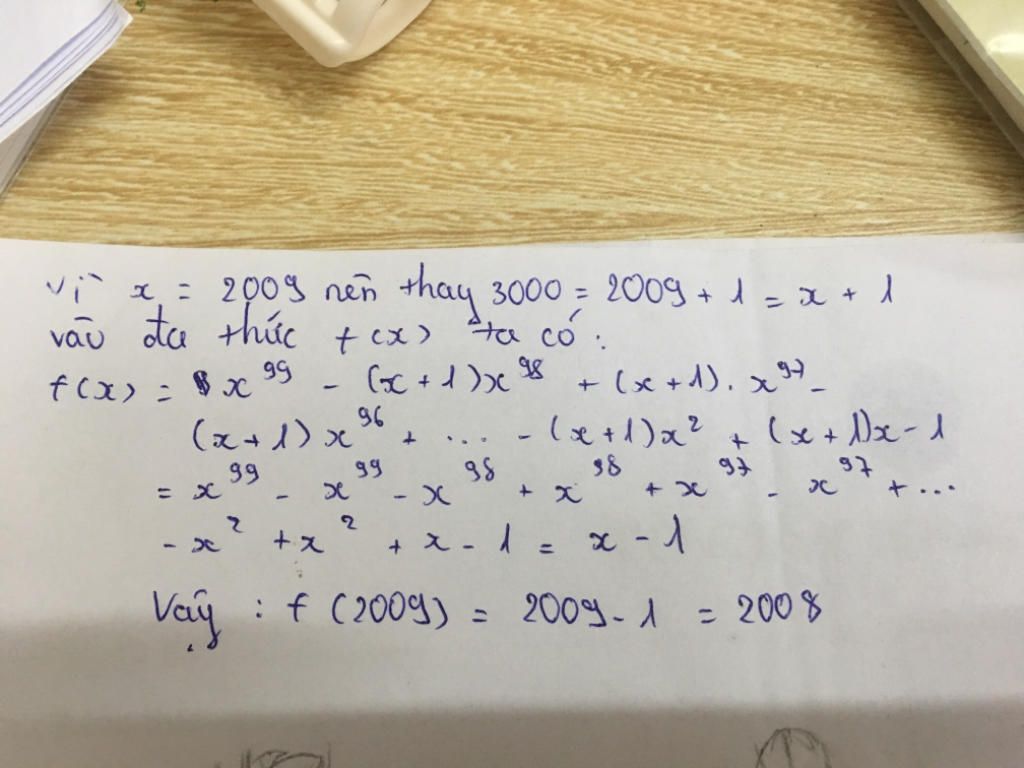 Vì x = 2009 nên thay 3000 = 2009 + 1 = x + 1
vào đa thức f(x) ta có :
f(x) = x^99 - (x+1)x^98 + (x+1). x^97 -
(x+1) x^96 + ... - (x+1)x^2 + (x+1)x - 1
= x^99 - x^99 - x^98 + x^98 + x^97 - x^97 + ...
- x^2 + x^2 + x - 1 = x - 1
Vậy : f (2009) = 2009 - 1 = 2008